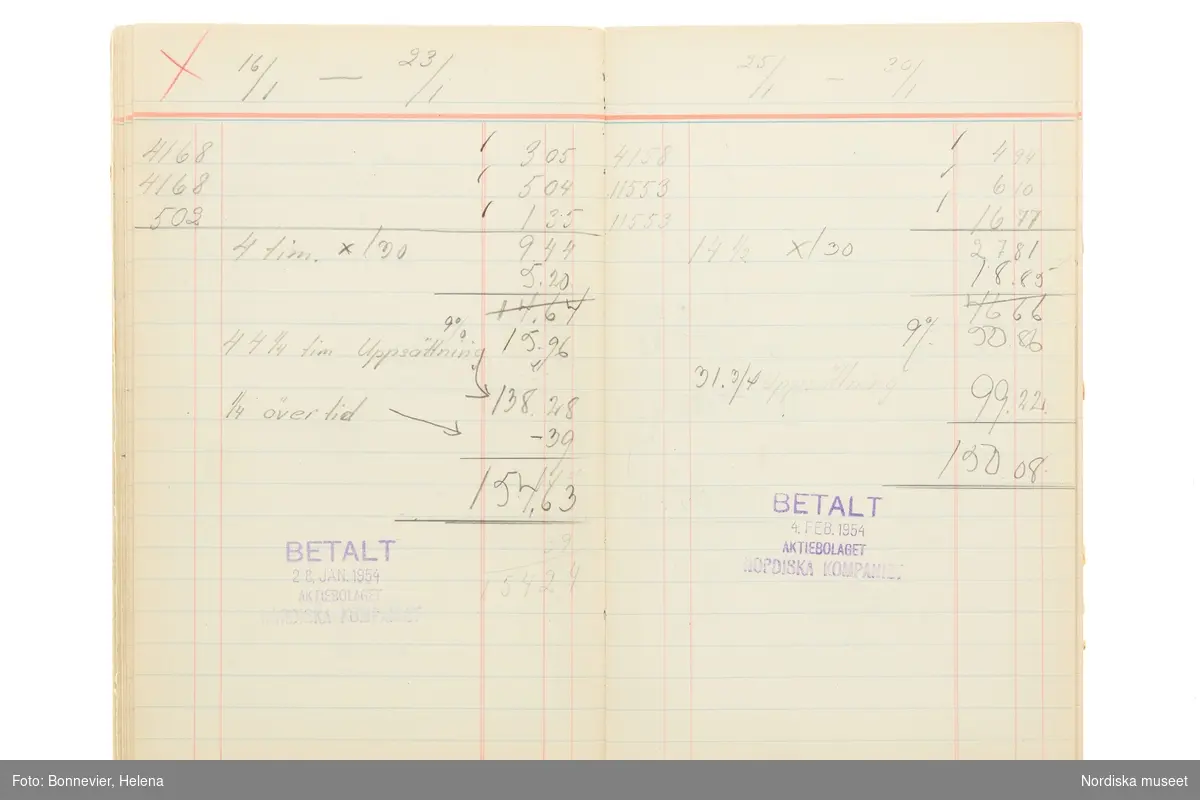 16/1 — 23/1
4168 3 05
4168 5 04
502 1 35
4 tim. x 1 30 9 44
5.20
14.64
9%
44 1/4 tim Uppsättning 15.96
138.28
1/4 övertid
-39
154,63
39
154 24
BETALT
28. JAN. 1954
AKTIEBOLAGET
NORDISKA KOMPANIET
25/1 — 30/1
4158 4 94
11553 6 10
11553 16 77
14 1/2 x 1 30 27 81
18.85
46 66
9% 50 86
31.3/4 Uppsättning 99.22
150 08.
BETALT
4. FEB. 1954
AKTIEBOLAGET
NORDISKA KOMPANIET
Foto: Bonnevier, Helena
Nordiska museet